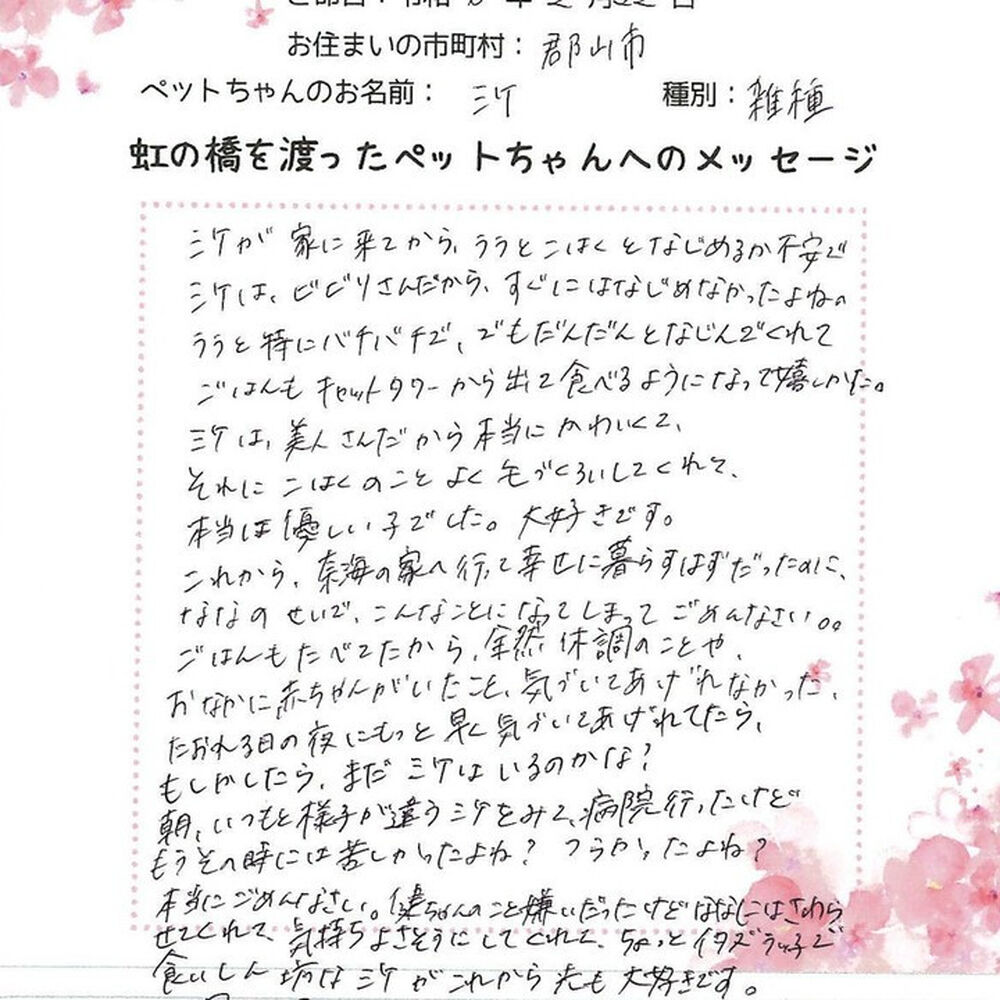 お住まいの市町村：郡山市
ペットちゃんのお名前：ミケ 種別：雑種
虹の橋を渡ったペットちゃんへのメッセージ
ミケが家に来てから、ララとこはくとなじめるか不安で
ミケは、ビビリさんだから、すぐにはなじめなかったよね。
ララと特にバチバチで、でもだんだんとなじんでくれて
ごはんもキャットタワーから出て食べるようになって嬉しかた。
ミケは、美人さんだから本当にかわいくて、
それにこはくのことよく毛づくろいしてくれて、
本当は優しい子でした。大好きです。
これから、奈海の家へ行って幸せに暮らすはずだったのに、
ななのせいで、こんなことになってしまってごめんなさい。。
ごはんもたべてたから、全然体調のことや、
おなかに赤ちゃんがいたこと、気づいてあげれなかった、
たおれる日の夜にもっと早く気づいてあげれてたら、
もしかしたら、まだミケはいるのかな？
朝、いつもと様子が違うミケをみて、病院行ったけど
もうその時には苦しかったよね？つらかったよね？
本当にごめんなさい。健ちゃんのこと嫌いだったけどななにはさわら
せてくれて、気持ちよさそうにしてくれて、ちょっとイタズラっ子で
食いしん坊なミケがこれから先も大好きです。